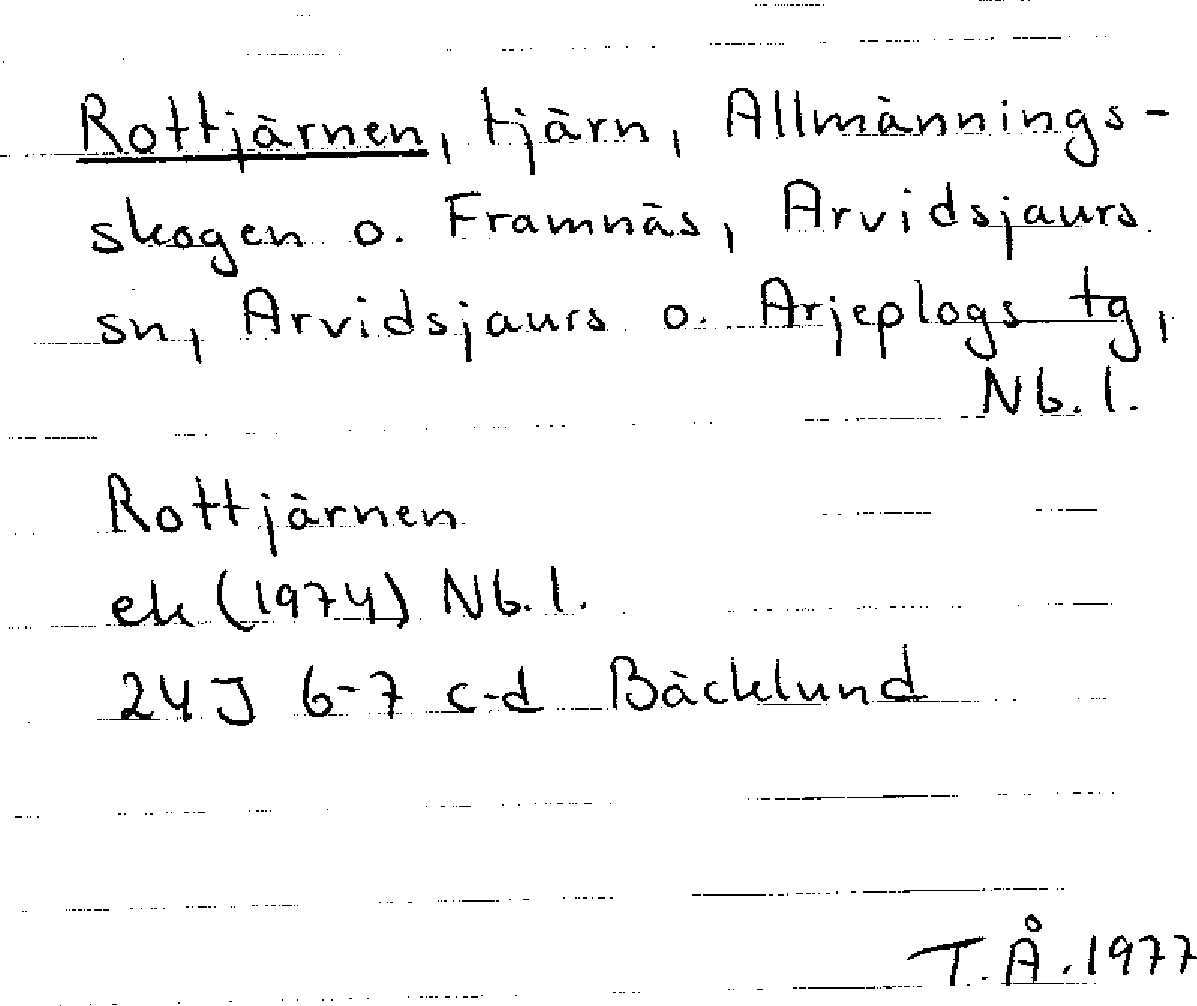 Rottjärnen, tjärn, Allmännings-
skogen o. Framnäs, Arvidsjaurs
sn, Arvidsjaurs o. Arjeplogs tg,
Nb. l.
Rottjärnen
ek (1974) Nb. l.
24 J 6-7 c-d Bäcklund
T. Å. 1977